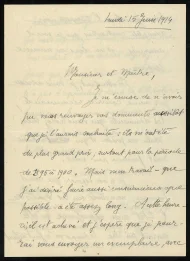 Lundi 15 Juin 1914
Monsieur et Maître,
Je m'excuse de n'avoir
pu vous renvoyer vos documents aussitôt
que je l'aurais souhaité : ils m'ont été
du plus grand prix, surtout pour la période
de 1895 à 1900. Mais mon travail - que
j'ai désiré faire aussi consciencieux que
possible - a été assez long. A cette heure-
ci il est achevé et j'espère que je pour-
rai vous envoyer un exemplaire, avec